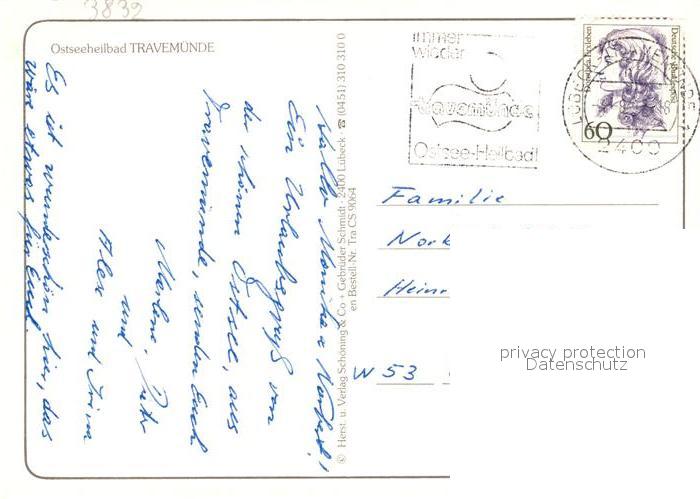 3832
Ostseeheilbad TRAVEMÜNDE
Hallo Monika + Norbert!
Ein Urlaubsgruß von
der schönen Ostsee, aus
Travemünde, senden Euch
Marlene, Dieter
und
Alex und Irina
Es ist wunderschön hier, das
wäre etwas für Euch.
© Herst. u. Verlag Schöning & Co + Gebrüder Schmidt · 2400 Lübeck · ☎ (0451) 310 310 0
en Bestell-Nr. Tra CS 9064
immer
wieder
Travemünde
Ostsee-Heilbad!
60
Deutsche Bundespost
2400
Familie
Nork
Heinr
W 53
privacy protection
Datenschutz